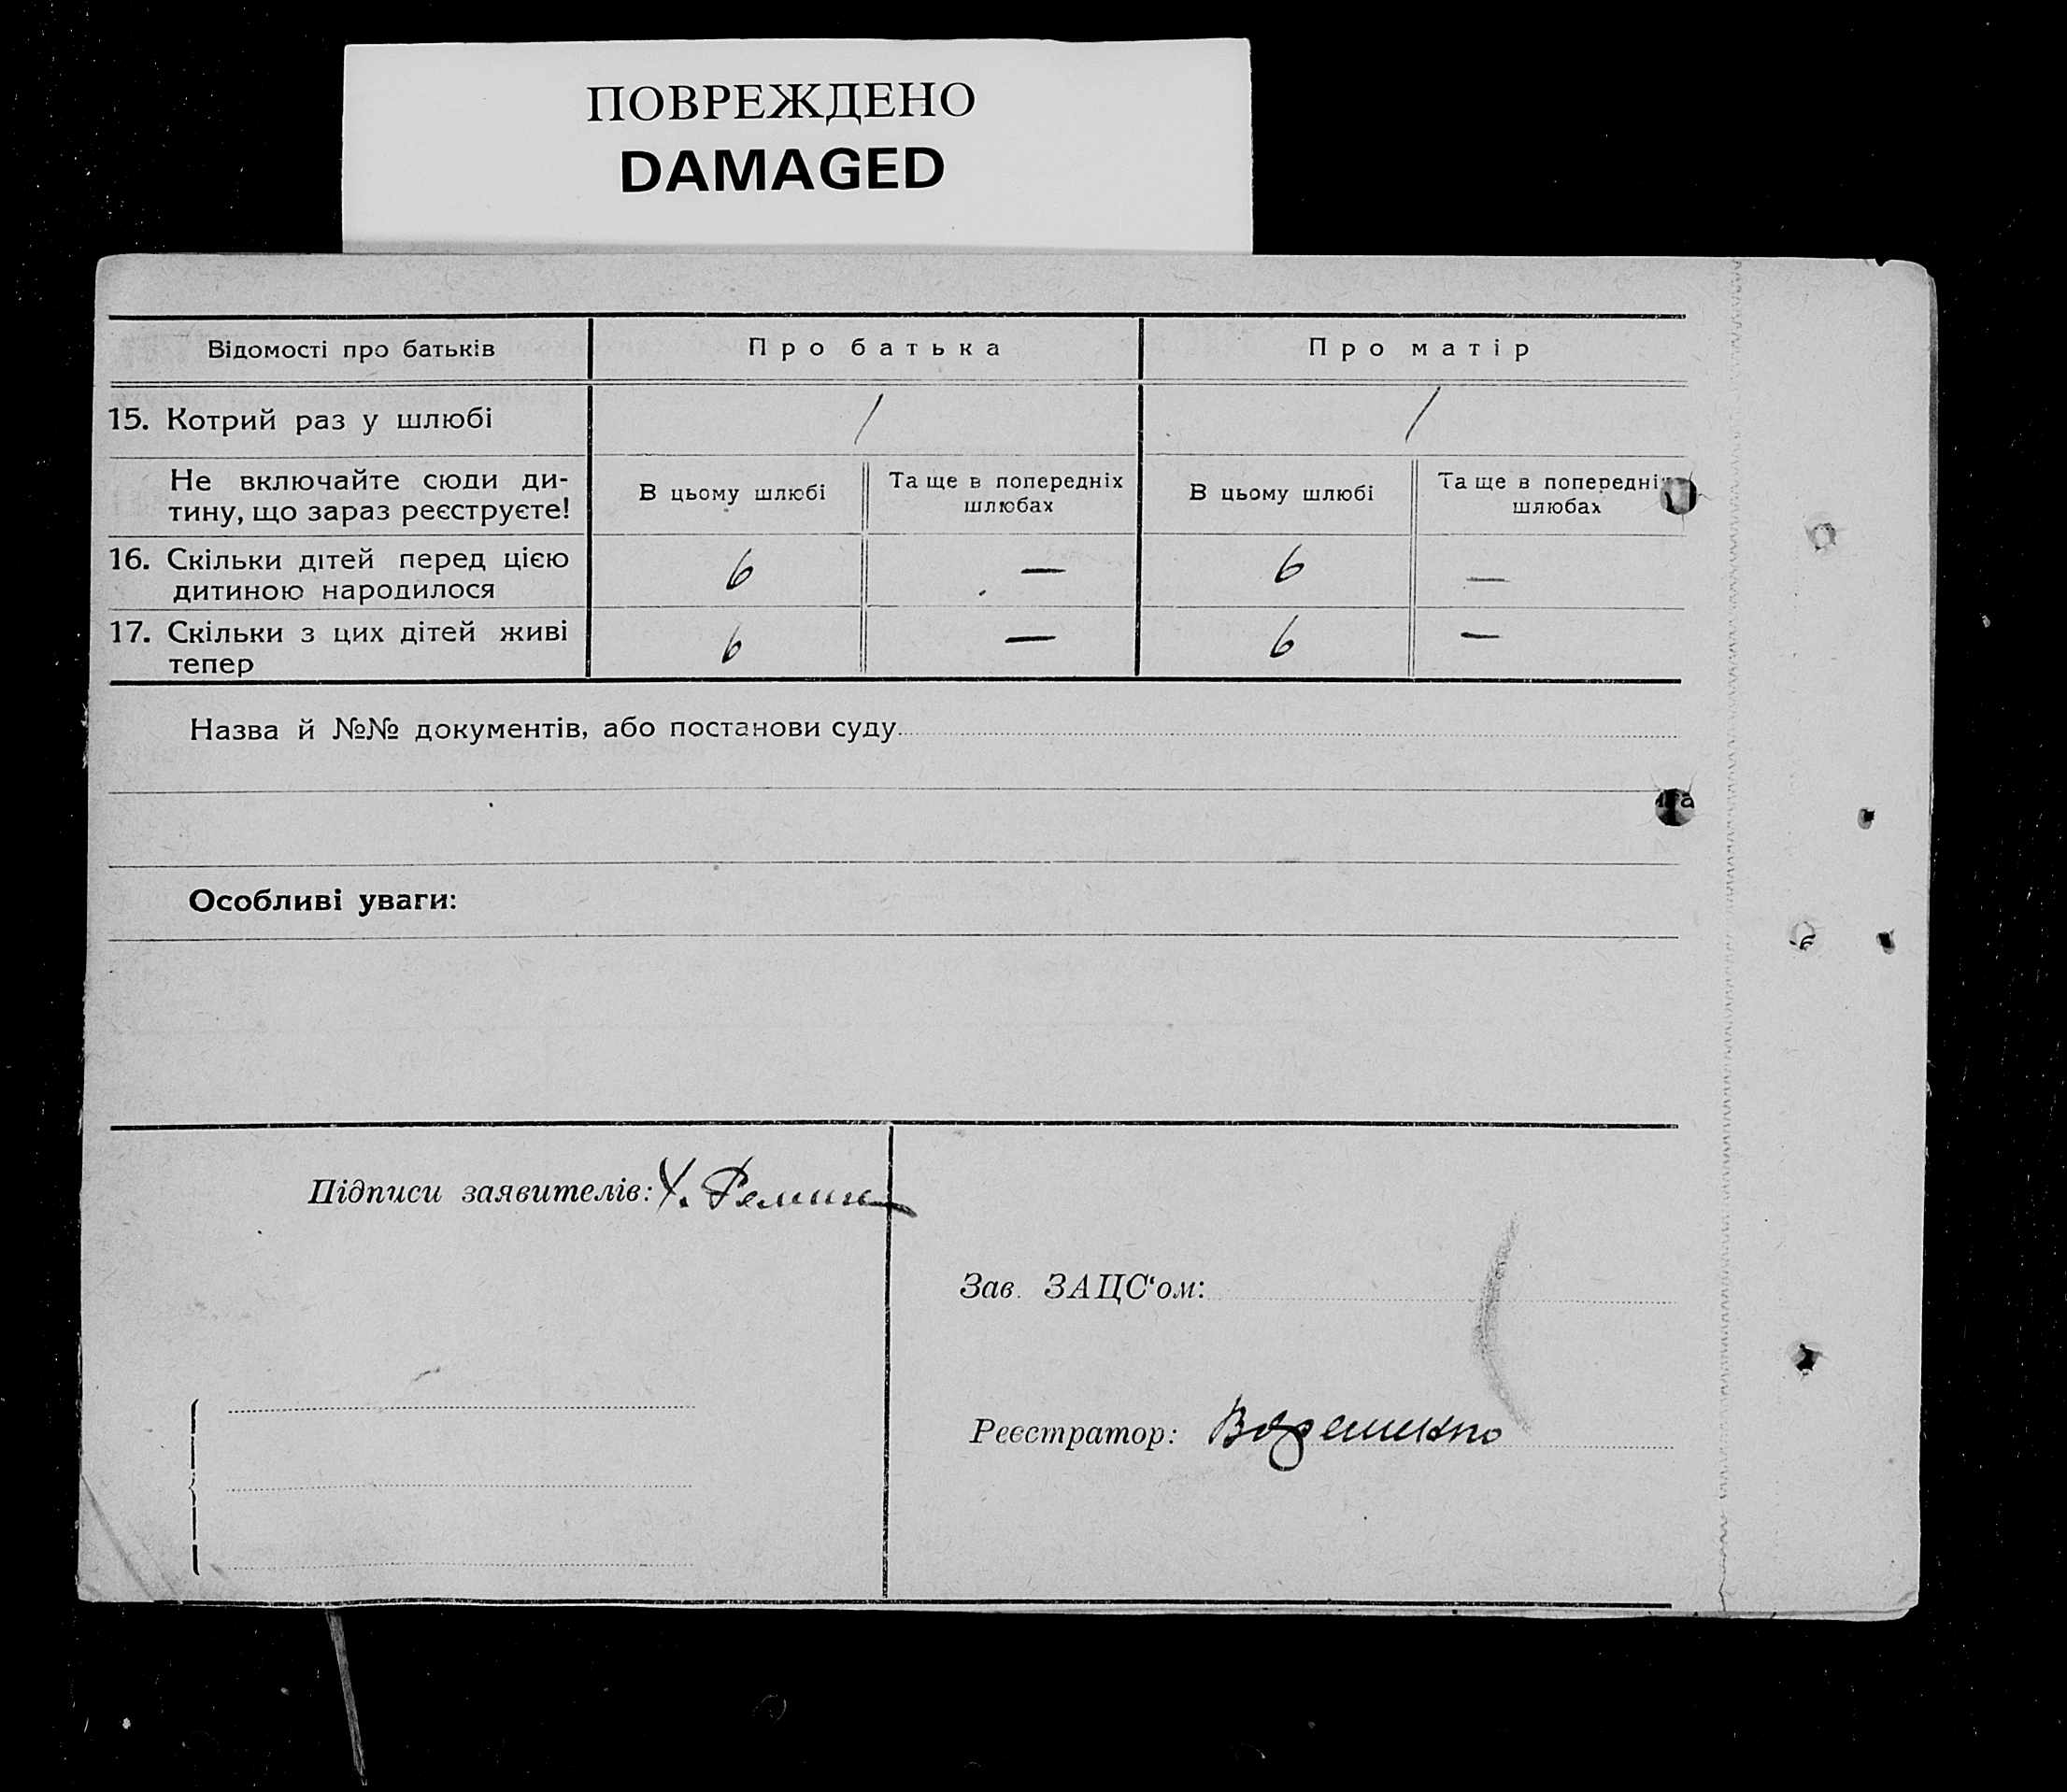 ПОВРЕЖДЕНО
DAMAGED
Відомості про батьків
Про батька
Про матір
15. Котрий раз у шлюбі
1
1
Не включайте сюди ди-
тину, що зараз реєструєте!
В цьому шлюбі
Та ще в попередніх
шлюбах
В цьому шлюбі
Та ще в попередніх
шлюбах
16. Скільки дітей перед цією
дитиною народилося
6
—
6
—
17. Скільки з цих дітей живі
тепер
6
—
6
—
Назва й №№ документів, або постанови суду
Особливі уваги:
Підписи заявителів:
Зав. ЗАЦС‘ом:
Реєстратор: